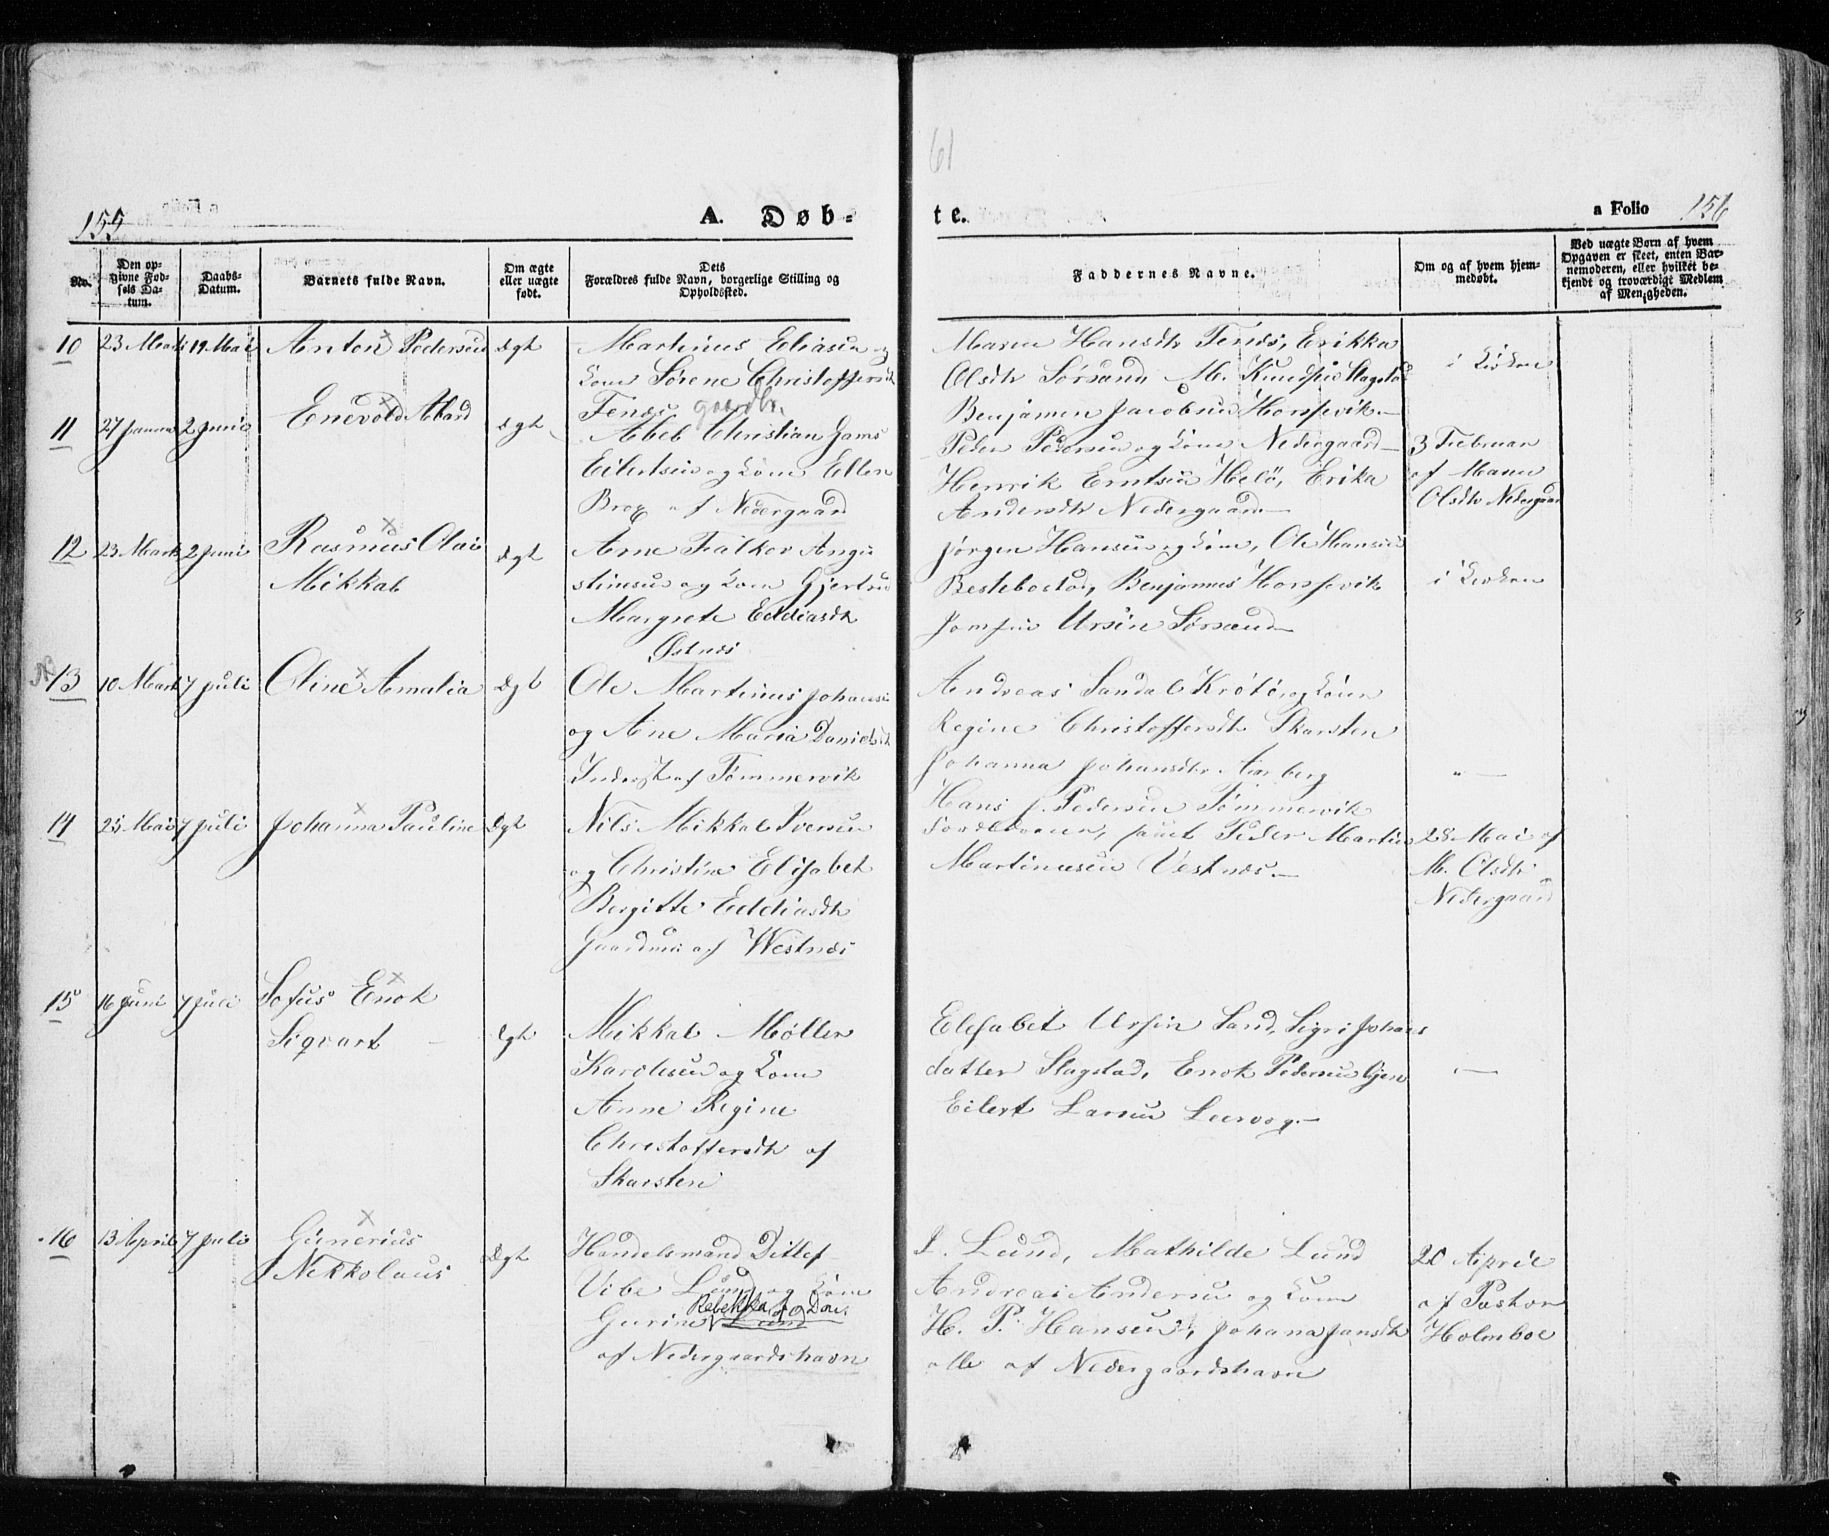 61
155
A. Døb-
te.
a Folio 156
No.
Den op-
givne Fød-
sels Da-
tum.
Daabs-
Datum.
Barnets fulde Navn.
Om ægte
eller uægte
født.
Dets
Forældres fulde Navn, borgerlige Stilling og
Opholdssted.
Faddernes Navne.
Om og af hvem hjem-
medøbt.
Ved uægte Børn af hvem
Opgaven er skeet, enten Bar-
nemoderen, eller hvilket be-
kjendt og troværdigt Medlem
af Menigheden.
10 19 Mai Anton Pedersen
Martinus Eliasen og
Kone Sørene Christoffersdtr
Tenæs gaardbr.
Maren Hansdtr Tenæs, Erikka
Olsdtr Sørsand, M. Slagstad
Benjamen Jacobsen
i Kirken
11 27 Januar 2 Juni Enevold Abard
Christian
Eilertsen og Kone Ellen
Brox af Nedergaard
Peder Pedersen og Kone Nedergaard
Henrik Erntsen Helö, Erika
Andersdtr Nedergaard
3 Februar
af Maren
Olsdtr Nedergaard
12 23 Marts 2 Juni Rasmus Olai
Mikkal
Arne Falkor Angu
stinsen og Kone Gjertrud
Margrete Eddiasdtr
Østnæs
Jørgen Hansen og Kone, Ole Hansen
Bestebostad, Benjamen
Jomfru Ursin Sørsand
i Kirken
13 10 Marts 7 Juli Oline Amalia
Ole Martinus Johansen
og Ane Maria Danielsdtr
Inderst af Tømmervik
Andreas Sandal Krøtø, og Kone
Regine Christoffersdtr Skarsten
Johanna Johansdtr Aarberg
Hans J. Pedersen Tømmervik
14 25 Mai 7 Juli Johanna Pauline
Nils Mikkal Iversen
og Christine Elisabet
Bergitte Eddiasdtr
Gaardm. af Westnæs
Forældrene, samt Peder Martin
Martinusen Vestnæs
28 Mai af
M. Olsdtr
Nedergaard
15 16 Juni 7 Juli Sofus Enok
Siqvart
Mikkal Møller
og Kone
Anne Regine
Christoffersdtr af
Skarsten
Elesabet Ursin Sand, Sigri Johans
datter Slagstad, Enok Pedersen
Eilert Larsen
16 13 April 7 Juli Gunerius
Nikkolaus
Handelsmand Ditlef
Vibe Lund og Kone
Rebekka f.
Gurine Lund
af Nedergaardshavn
Lund, Mathilde Lund
Andreas Andersen og Kone
H. P. Hansen, Johana Jansdtr
alle af Nedergaardshavn
20 April
af Pastor
Holmboe